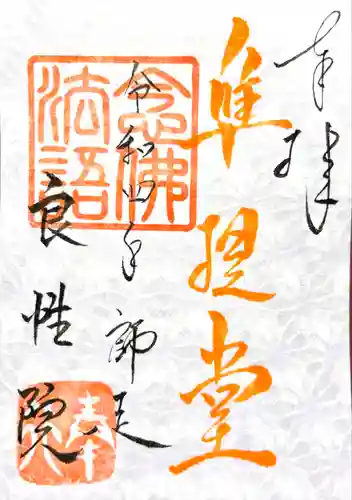 奉拝
準提堂
令和四年 師走
良性院
念佛
法語
奉